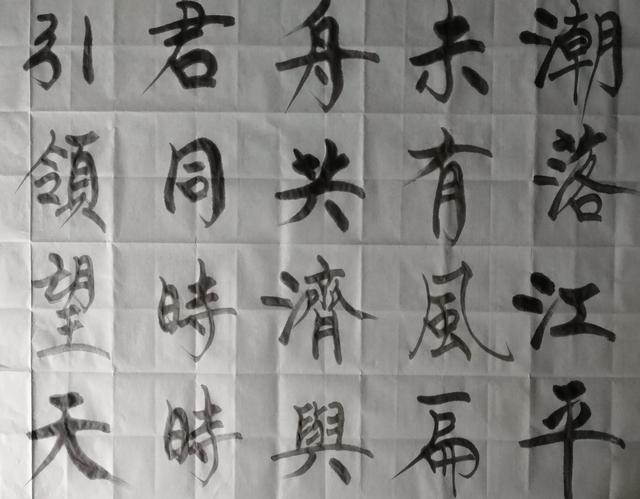 潮落江平
未有風扁
舟共濟與
君同時時
引領望天